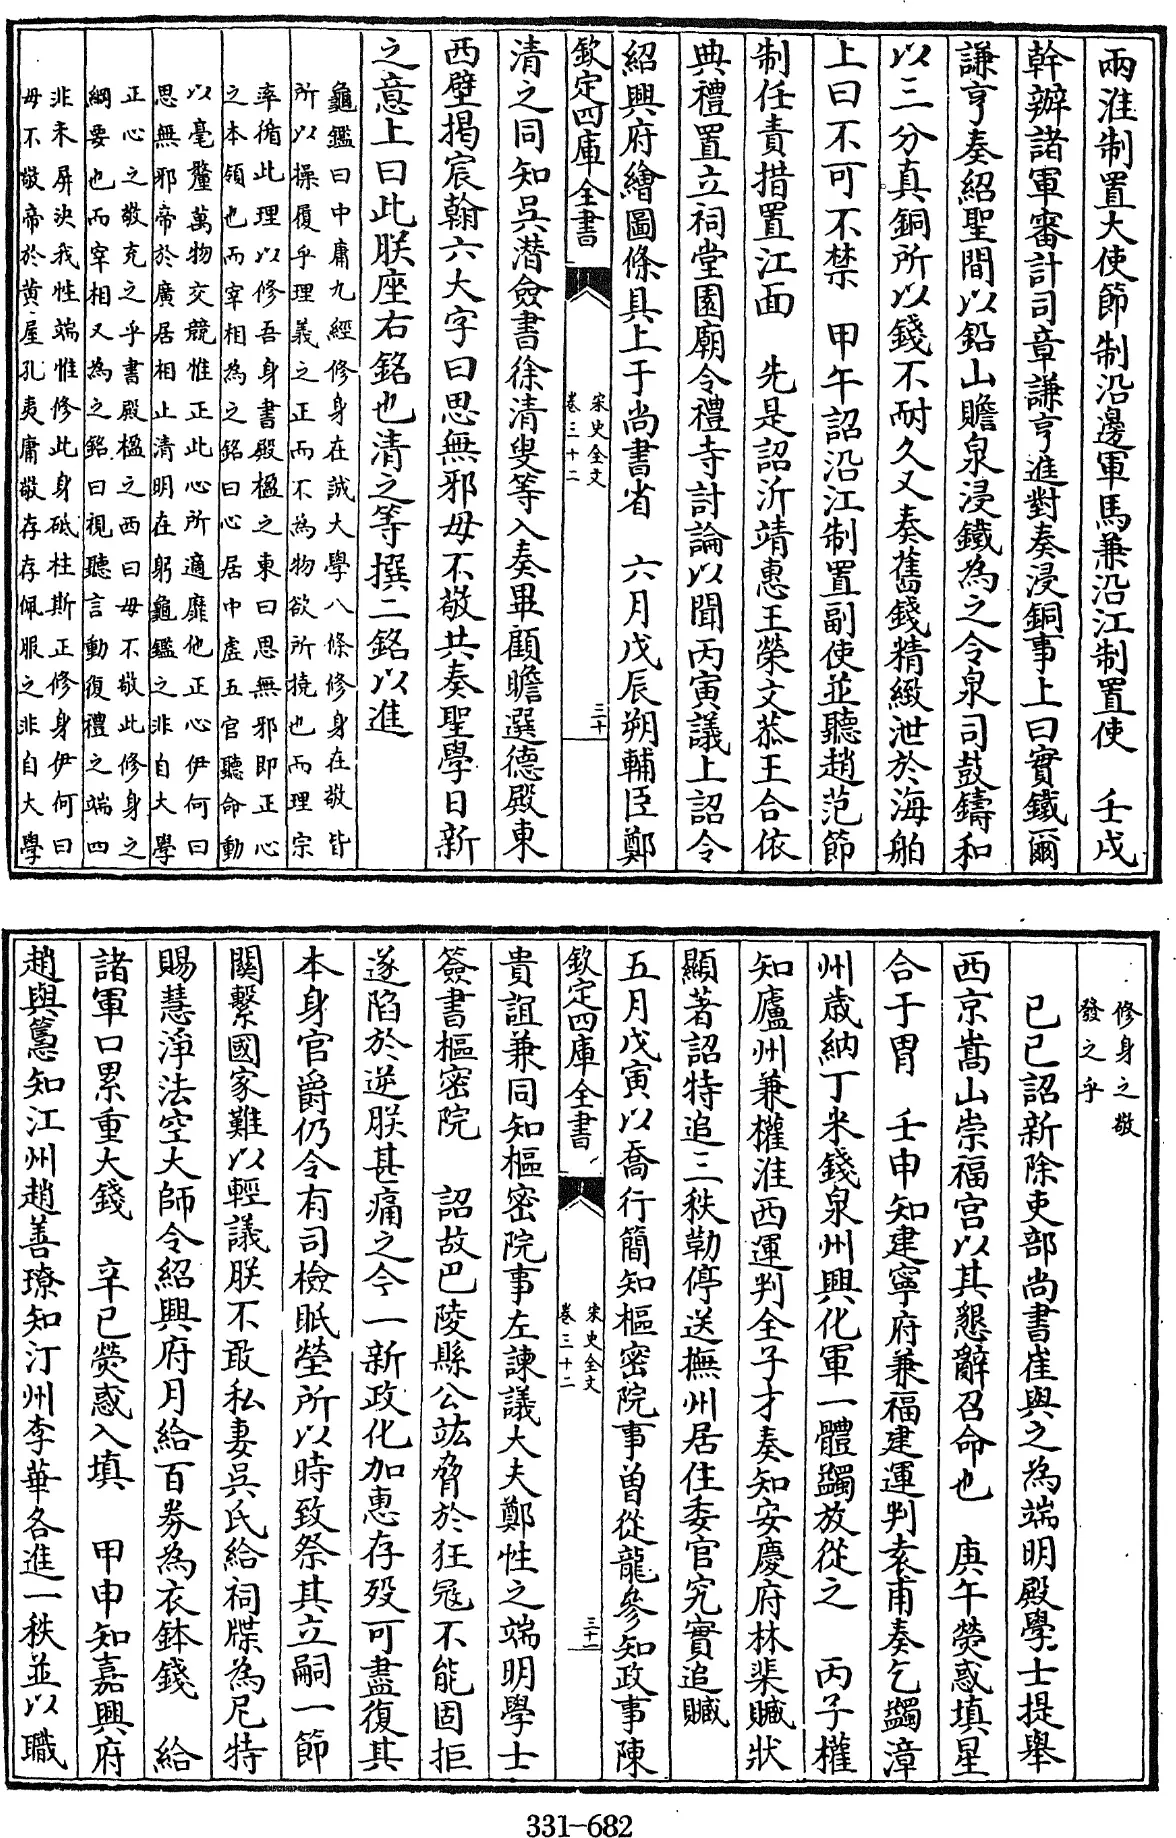 兩淮制置大使節制沿邊軍馬兼沿江制置使　壬戌
幹辦諸軍審計司章謙亨進對奏浸銅事上曰實鐵爾
謙亨奏紹聖間以鉛山膽泉浸鐵為之令泉司鼓鑄和
以三分真銅所以錢不耐久又奏舊錢精緻泄於海舶
上曰不可不禁　甲午詔沿江制置副使並聽趙范節
制任責措置江面　先是詔沂靖惠王榮文恭王合依
典禮置立祠堂園廟令禮寺討論以聞丙寅議上詔令
紹興府繪圖條具上于尚書省　六月戊辰朔輔臣鄭
欽定四庫全書
宋史全文
卷三十二
三十
清之同知吳潛僉書徐清叟等入奏畢顧瞻選德殿東
西壁揭宸翰六大字曰思無邪毋不敬共奏聖學日新
之意上曰此朕座右銘也清之等撰二銘以進
龜鑑曰中庸九經修身在誠大學八條修身在敬皆
所以操履乎理義之正而不為物欲所撓也而理宗
率循此理以修吾身書殿楹之東曰思無邪即正心
之本領也而宰相為之銘曰心居中虛五官聽命動
以毫釐萬物交競惟正此心所適靡他正心伊何曰
思無邪帝於廣居相止清明在躬龜鑑之非自大學
正心之敬充之乎書殿楹之西曰毋不敬此修身之
綱要也而宰相又為之銘曰視聽言動復禮之端四
非未屏決我性端惟修此身砥柱斯正修身伊何曰
毋不敬帝於黃屋孔夷庸敬存存佩服之非自大學
修身之敬
發之乎
己巳詔新除吏部尚書崔與之為端明殿學士提舉
西京嵩山崇福宮以其懇辭召命也　庚午熒惑填星
合于胃　壬申知建寧府兼福建運判袁甫奏乞蠲漳
州歲納丁米錢泉州興化軍一體蠲放從之　丙子權
知廬州兼權淮西運判全子才奏知安慶府林棐贓狀
顯著詔特追三秩勒停送撫州居住委官究實追贓
五月戊寅以喬行簡知樞密院事曾從龍參知政事陳
欽定四庫全書
宋史全文
卷三十二
三十一
貴誼兼同知樞密院事左諫議大夫鄭性之端明學士
簽書樞密院　詔故巴陵縣公竑脅於狂冦不能固拒
遂陷於逆朕甚痛之今一新政化加惠存歿可盡復其
本身官爵仍令有司檢眡塋所以時致祭其立嗣一節
關繫國家難以輕議朕不敢私妻吳氏給祠牒為尼特
賜慧淨法空大師令紹興府月給百券為衣鉢錢　給
諸軍口累重大錢　辛巳熒惑入填　甲申知嘉興府
趙與𥲅知江州趙善璙知汀州李華各進一秩並以職
331-682